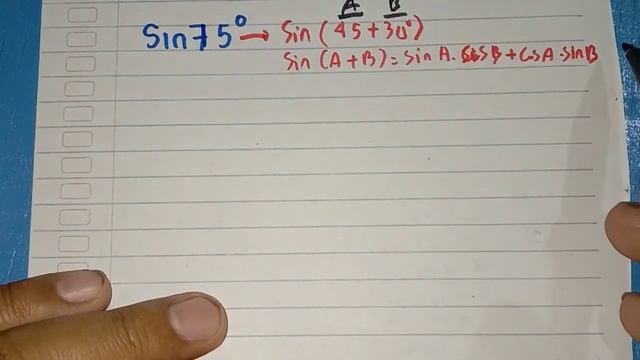 A B
Sin 75° → Sin (45 + 30°)
Sin (A + B) = Sin A. Cos B + Cos A . Sin B